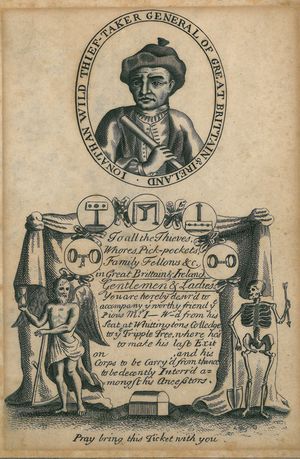 IONATHAN WILD THIEF-TAKER GENERAL OF GREAT BRITTAIN & IRELAND.
To all the Thieves,
Whores, Pick-pockets,
Family Fellons &c.
in Great Brittain & Ireland,
Gentlemen & Ladies
You are hereby desir'd to
accompany yͤ worthy friend yͤ
Pious Mͬ I— W—d from his
Seat at Whittingtons Colledge
to yͤ Tripple Tree, where he's
to make his last Exit
on , and his
Corps to be Carry'd from thence
to be decently Interr'd a-
mongst his Ancestors.
Pray bring this Ticket with you